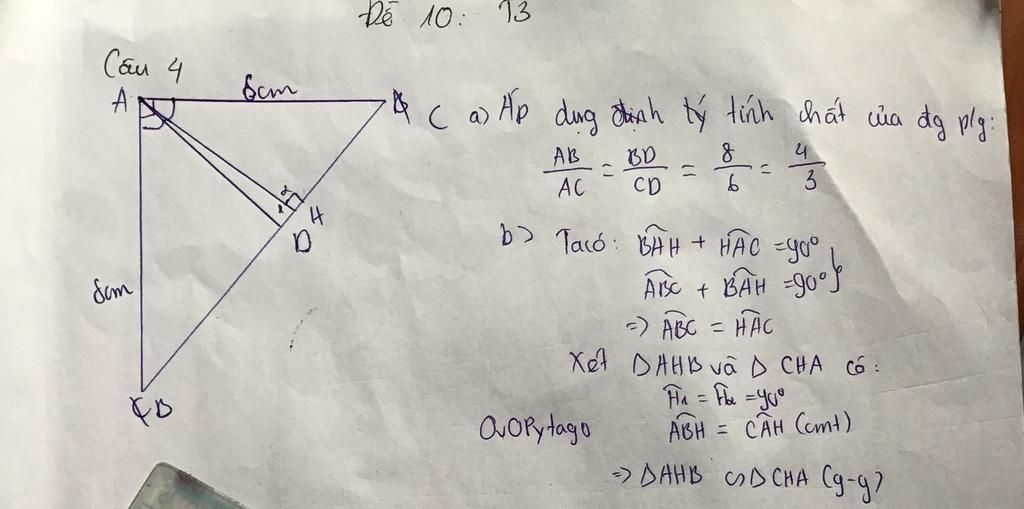 Đề 10: T3
Câu 4
A
6cm
C
2
1
H
D
8cm
B
a) Áp dụng định lý tính chất của đg p/g:
AB/AC = BD/CD = 8/6 = 4/3
b) Ta có: BÂH + HÂC = 90°
ABC + BÂH = 90°
=> ABC = HÂC
Xét ΔAHB và Δ CHA có:
Ĥ1 = Ĥ2 = 90°
ABH = CÂH (cmt)
=> ΔAHB ∽ Δ CHA (g-g)
Pytago